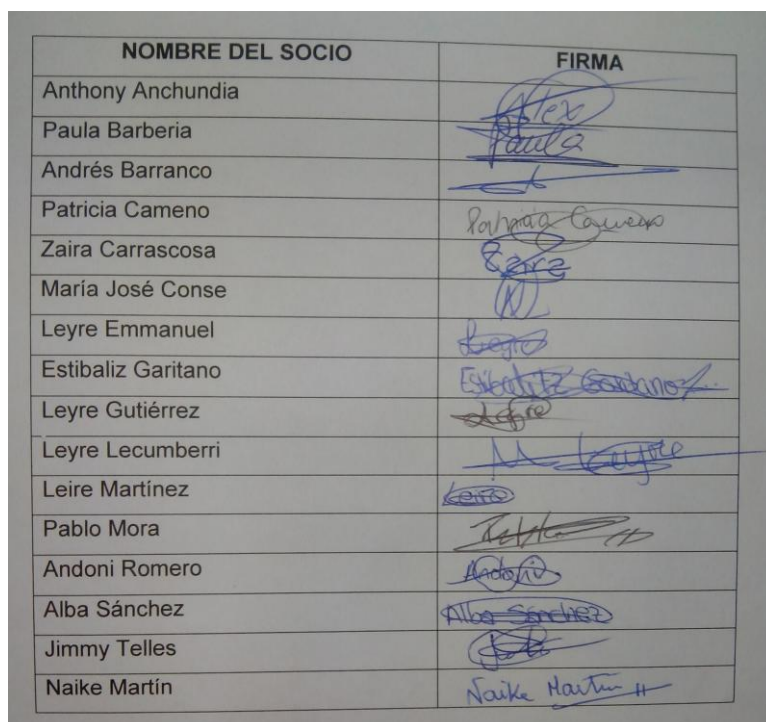 NOMBRE DEL SOCIO FIRMA
Anthony Anchundia Alex
Paula Barberia Paula
Andrés Barranco
Patricia Cameno Patricia Cameno
Zaira Carrascosa Zaira
María José Conse
Leyre Emmanuel Leyre
Estibaliz Garitano Estibaliz Garitano
Leyre Gutiérrez Leyre
Leyre Lecumberri Leyre
Leire Martínez Leire
Pablo Mora
Andoni Romero Andoni
Alba Sánchez Alba Sánchez
Jimmy Telles
Naike Martín Naike Martín